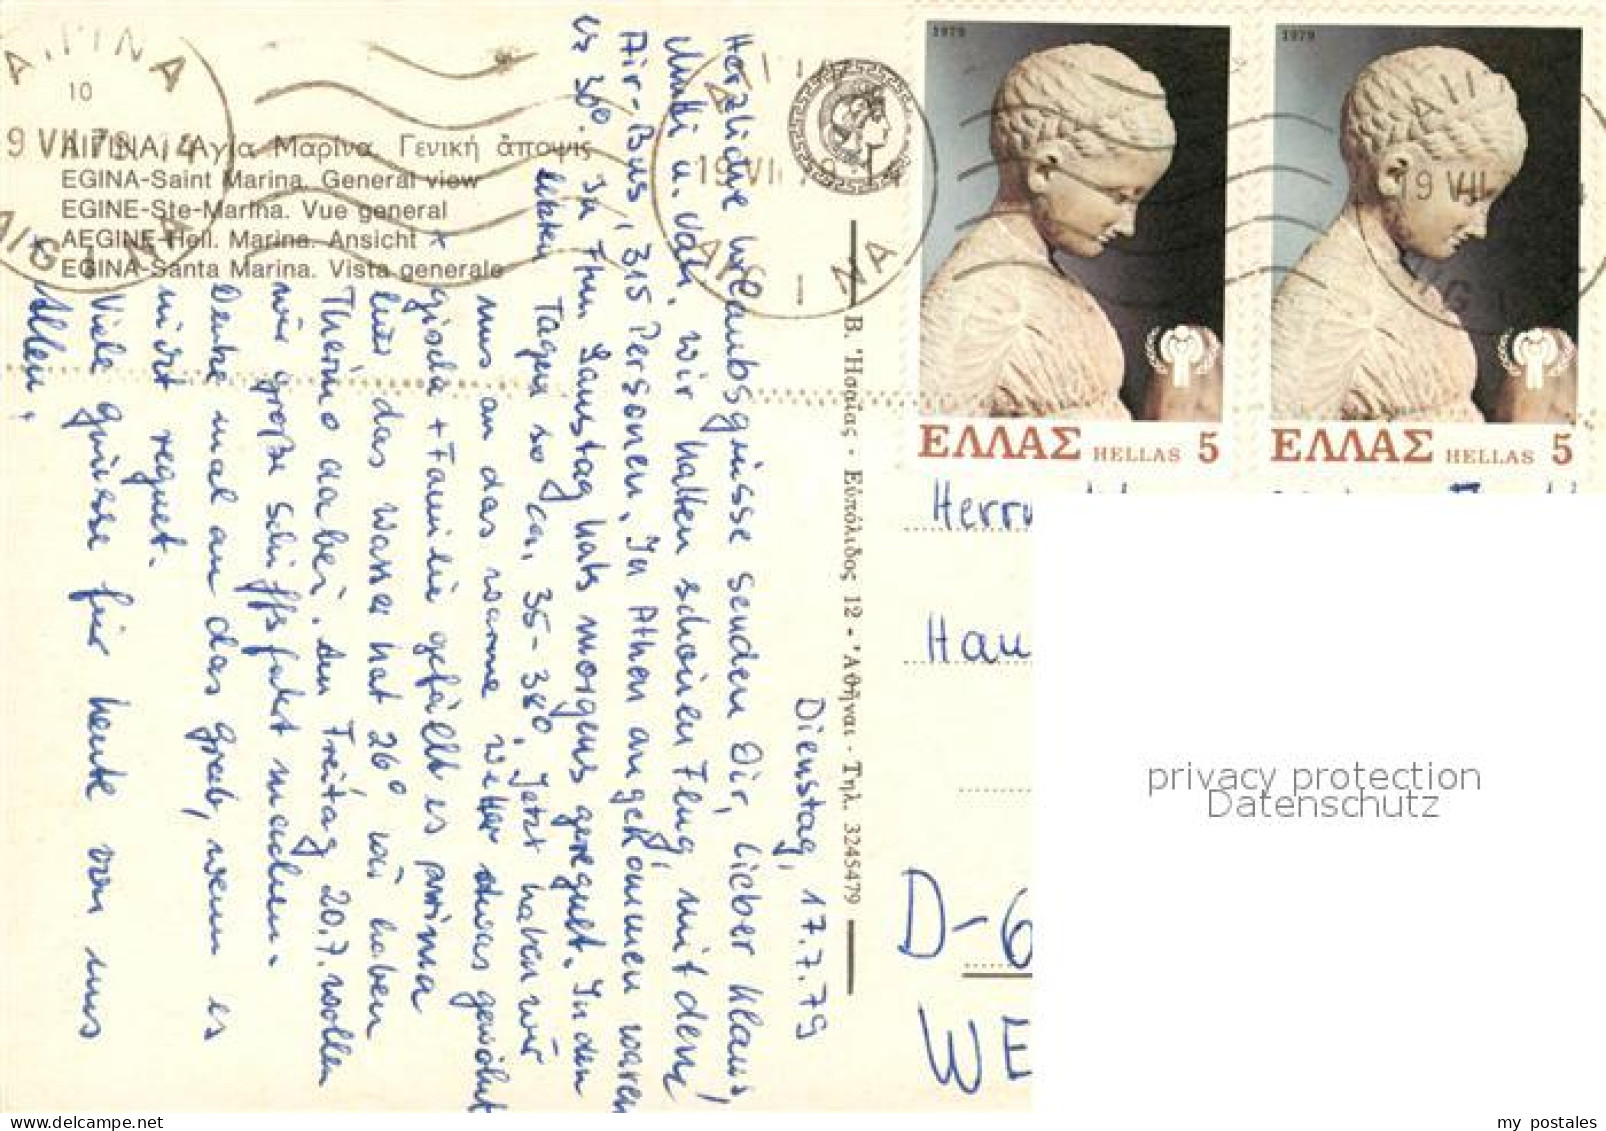 ΑΙΓΙΝΑ
10
19 VII 79 14
AIGINA
ΑΙΓΙΝΑ. Αγία Μαρίνα. Γενική ἄποψις
EGINA-Saint Marina. General view
EGINE-Ste-Marina. Vue general
AEGINE-Heil. Marina. Ansicht
EGINA-Santa Marina. Vista generale
Β. Ἡσαΐας - Εὐπόλιδος 12 - Ἀθῆναι - Τηλ. 3245479
1979
ΕΛΛΑΣ HELLAS 5
1979
ΕΛΛΑΣ HELLAS 5
19 VII
Dienstag, 17.7.79
Herzliche Urlaubsgrüsse senden Dir, lieber Klaus,
Mutti u. Vati, wir hatten schönen Flug, mit dem
Air-Bus, 315 Personen, In Athen angekommen waren
es 30°. In Ffm Samstag hats morgens geregnet. In den
letzten Tagen so ca. 35-38°. Jetzt haben wir
uns an das warme Wetter etwas gewöhnt
Gisela + Familie gefällt es prima
das Wasser hat 26° wir haben
Thermo dabei. Am Freitag 20.7. wollen
wir große Schiffsfahrt machen.
Denke mal an das Grab, wenn es
nicht regnet.
Viele Grüsse für heute von uns
Allen.
Herrn
Hau
D-6
WE
privacy protection
Datenschutz
my postales